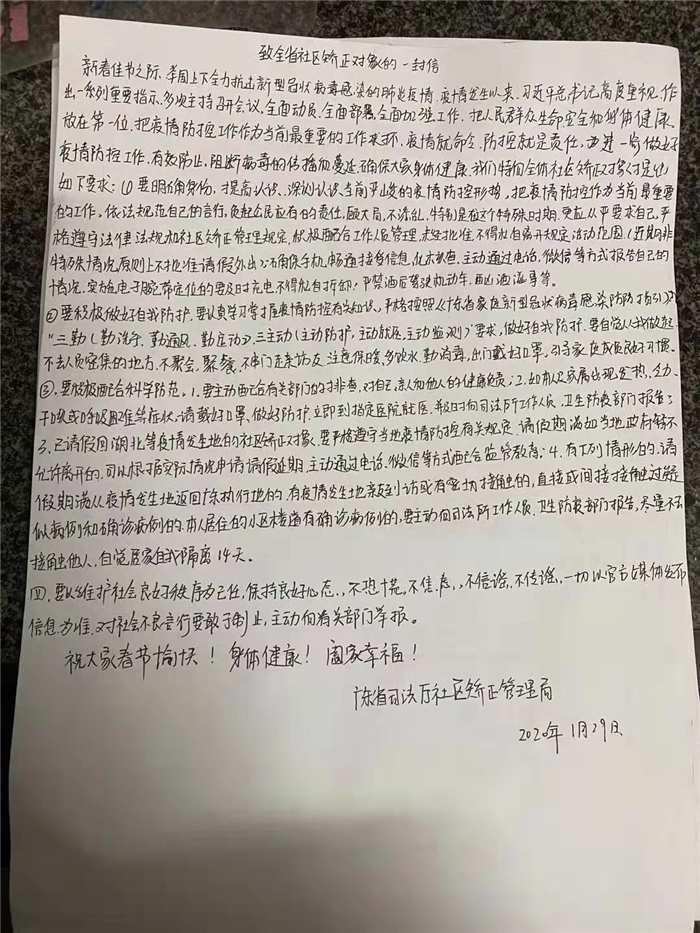 致全省社区矫正对象的一封信
新春佳节之际,举国上下全力抗击新型冠状病毒感染的肺炎疫情,疫情发生以来,习近平总书记高度重视,作
出一系列重要指示,多次主持召开会议,全面动员,全面部署,全面加强工作,把人民群众生命安全和身体健康
放在第一位,把疫情防控工作作为当前最重要的工作来抓,疫情就命令,防控就是责任,为进一步做好
疫情防控工作,有效防止,阻断病毒的传播和蔓延,确保大家身体健康,我们特向全体社区矫正对象提出
如下要求:(1)要明确身份,提高认识,深刻认识当前严峻的疫情防控形势,把疫情防控作为当前最重要
的工作,依法规范自己的言行,负起公民应有的责任,顾大局,不添乱,特别是在这个特殊时期,更应从严要求自己,严
格遵守法律法规和社区矫正管理规定,积极配合工作人员管理,未经批准,不得私自离开规定活动范围(近期非
特殊情况,原则上不批准请假外出),确保手机畅通接受信息化核查,主动通过电话、微信等方式报告自己的
情况,实施电子腕带定位的要及时充电不得私自拆卸;严禁酒后驾驶机动车、酗酒滋事等。
②要积极做好自我防护,要认真学习掌握疫情防控有关知识,严格按照《广东省家庭新型冠状病毒感染防防指引》的
"三勤(勤洗手、勤通风、勤运动)、三主动(主动防护,主动就医,主动监测)"要求,做好自我防护,要自觉从我做起,
不去人员密集的地方,不聚会、聚餐,不串门走亲访友,注意保暖,多饮水,勤消毒,出门戴好口罩,引导家庭成员良好习惯。
③、要积极配合科学防范。1.要主动配合有关部门的排查,对自己,亲人和他人的健康负责;2.如本人及家属出现发热,乏力、
干咳或呼吸困难等症状,请戴好口罩,做好防护,立即到指定医院就医,并及时向司法所工作人员、卫生防疫部门报告;
3.已请假回湖北等疫情发生地的社区矫正对象,要严格遵守当地疫情防控有关规定,请假期满如当地政府转不
允许离开的,可以根据实际情况申请请假延期,主动通过电话、微信等方式配合监管教育;4.有下列情形的,请
假期满从疫情发生地返回广东执行地的,有疫情发生地亲友到访或有密切接触的,直接或间接接触过疑
似病例和确诊病例的,本人居住的小区楼道有确诊病例的,要主动向司法所工作人员、卫生防疫部门报告,尽量不去
接触他人,自觉居家自我隔离14天。
四.要以维护社会良好秩序为己任,保持良好心态,不恐慌,不焦虑,不信谣,不传谣,一切以官方媒体发布
信息为准,对社会不良言行要敢于制止,主动向有关部门举报。
祝大家春节愉快!身体健康!阖家幸福!
广东省司法厅社区矫正管理局
2020年1月29日